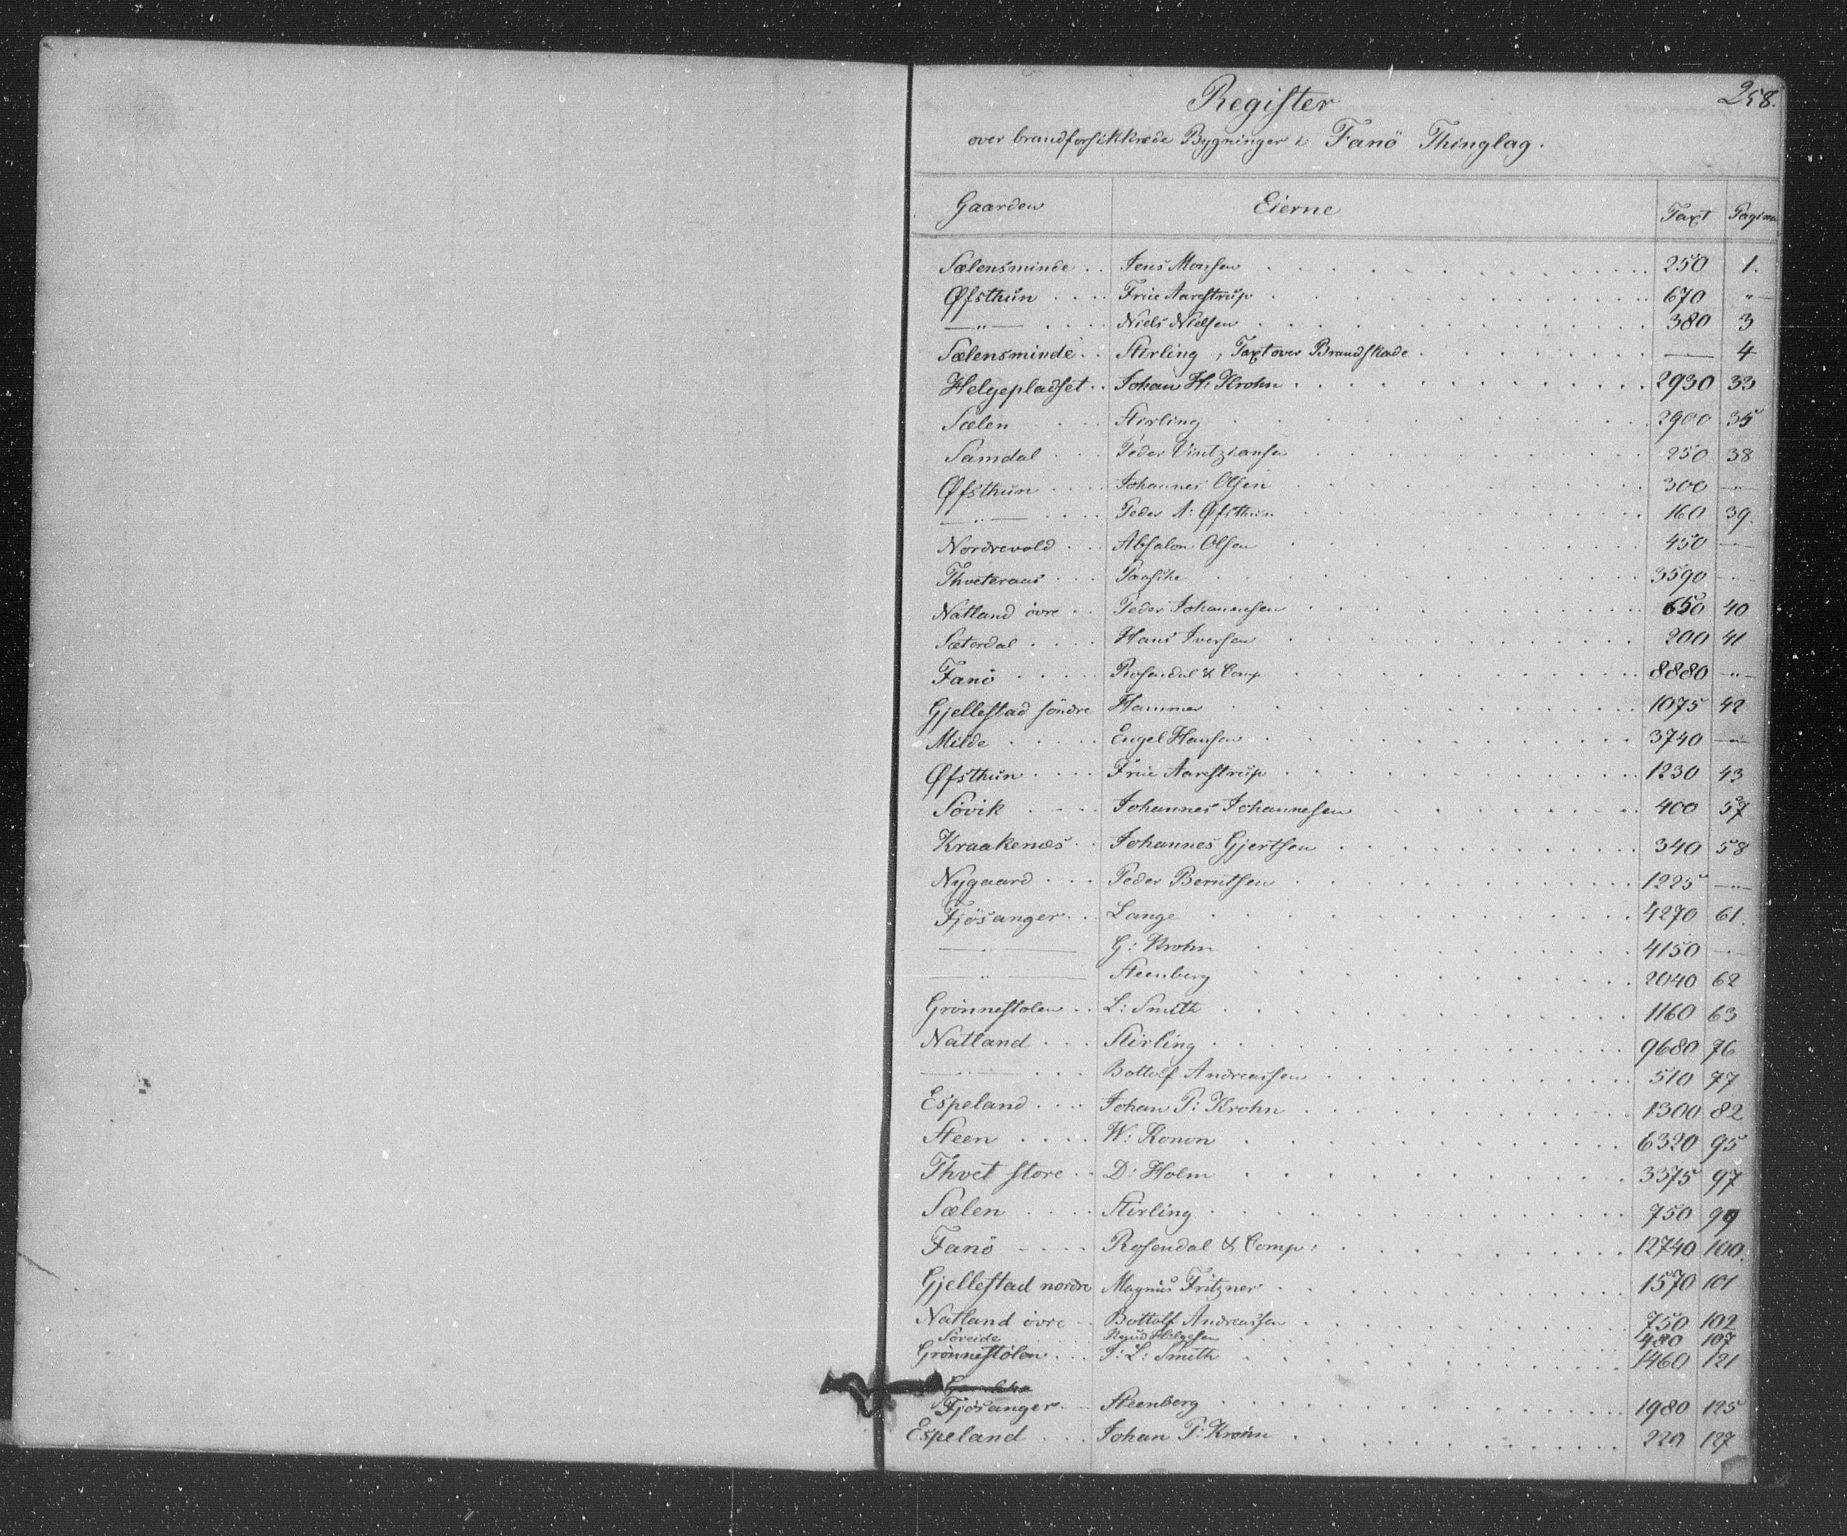 258.
Register
over brandforsikkrede Bygninger i Fanö Thinglag.
Gaarden Eierne Taxt Pagina
Sælensminde . . Jens Monsen 250 1.
Øfsthün . . . . Frue Aarestrüp 670 "
— " — . . . . Niels Nielsen 380 3
Sælensminde . . Stirling, Taxt over Brandskade — 4
Helgepladset . . Johan H: Krohn 2930 33
Sælen . . . . Stirling 2900 35
Samdal . . . Peder 250 38
Øfsthün . . . . Johannes Olsen 300 "
— " — . . . . Peder A: Øfsthün 160 39.
Nordrevold . . . Absalon Olsen 450 — " —
Thveteraas . . . Paasche 3590 — " —
Natland övre . . Peder Johannesen 650 40
Sæterdal . . . . Hans Iversen 200 41
Fanö . . . . . Rosendal & Comp 8880 — " —
Gjellestad söndre Hammer 1075 42
Milde . . . . . Engel Hansen 3740 — " —
Øfsthün . . . . Frue Aarestrüp 1230 43
Sövik . . . . Johannes Johannesen 400 57
Kraakenæs . . Johannes Gjertsen 340 58
Nygaard . . . Peder Berntsen 1225 — " —
Fjösanger . . Lange 4270 61.
— " — G: Krohn 4150 — " —
— " — Steenberg 2040 62
Grönnestölen . . L: Smith 1160 63
Natland . . . Stirling 9680 76
— " — . . . Bottolf Andreassen 510 77
Espeland . . . . Johan P: Krohn 1300 82
Steen . . . . W: Konow 6320 95
Thvet store . . D: Holm 3375 97
Sælen . . . . Stirling 750 99
Fanö . . . . Rosendal & Comp: 12740 100.
Gjellestad nordre Magnus Fritzner 1570 101
Natland övre . . Bottolf Andreassen 750 102
Söreide Knud Helgesen 480 107
Grönnestölen . . . J: L: Smith 1460 121
Fjösanger . . Steenberg 1980 125
Espeland . . . Johan P: Krohn 220 127